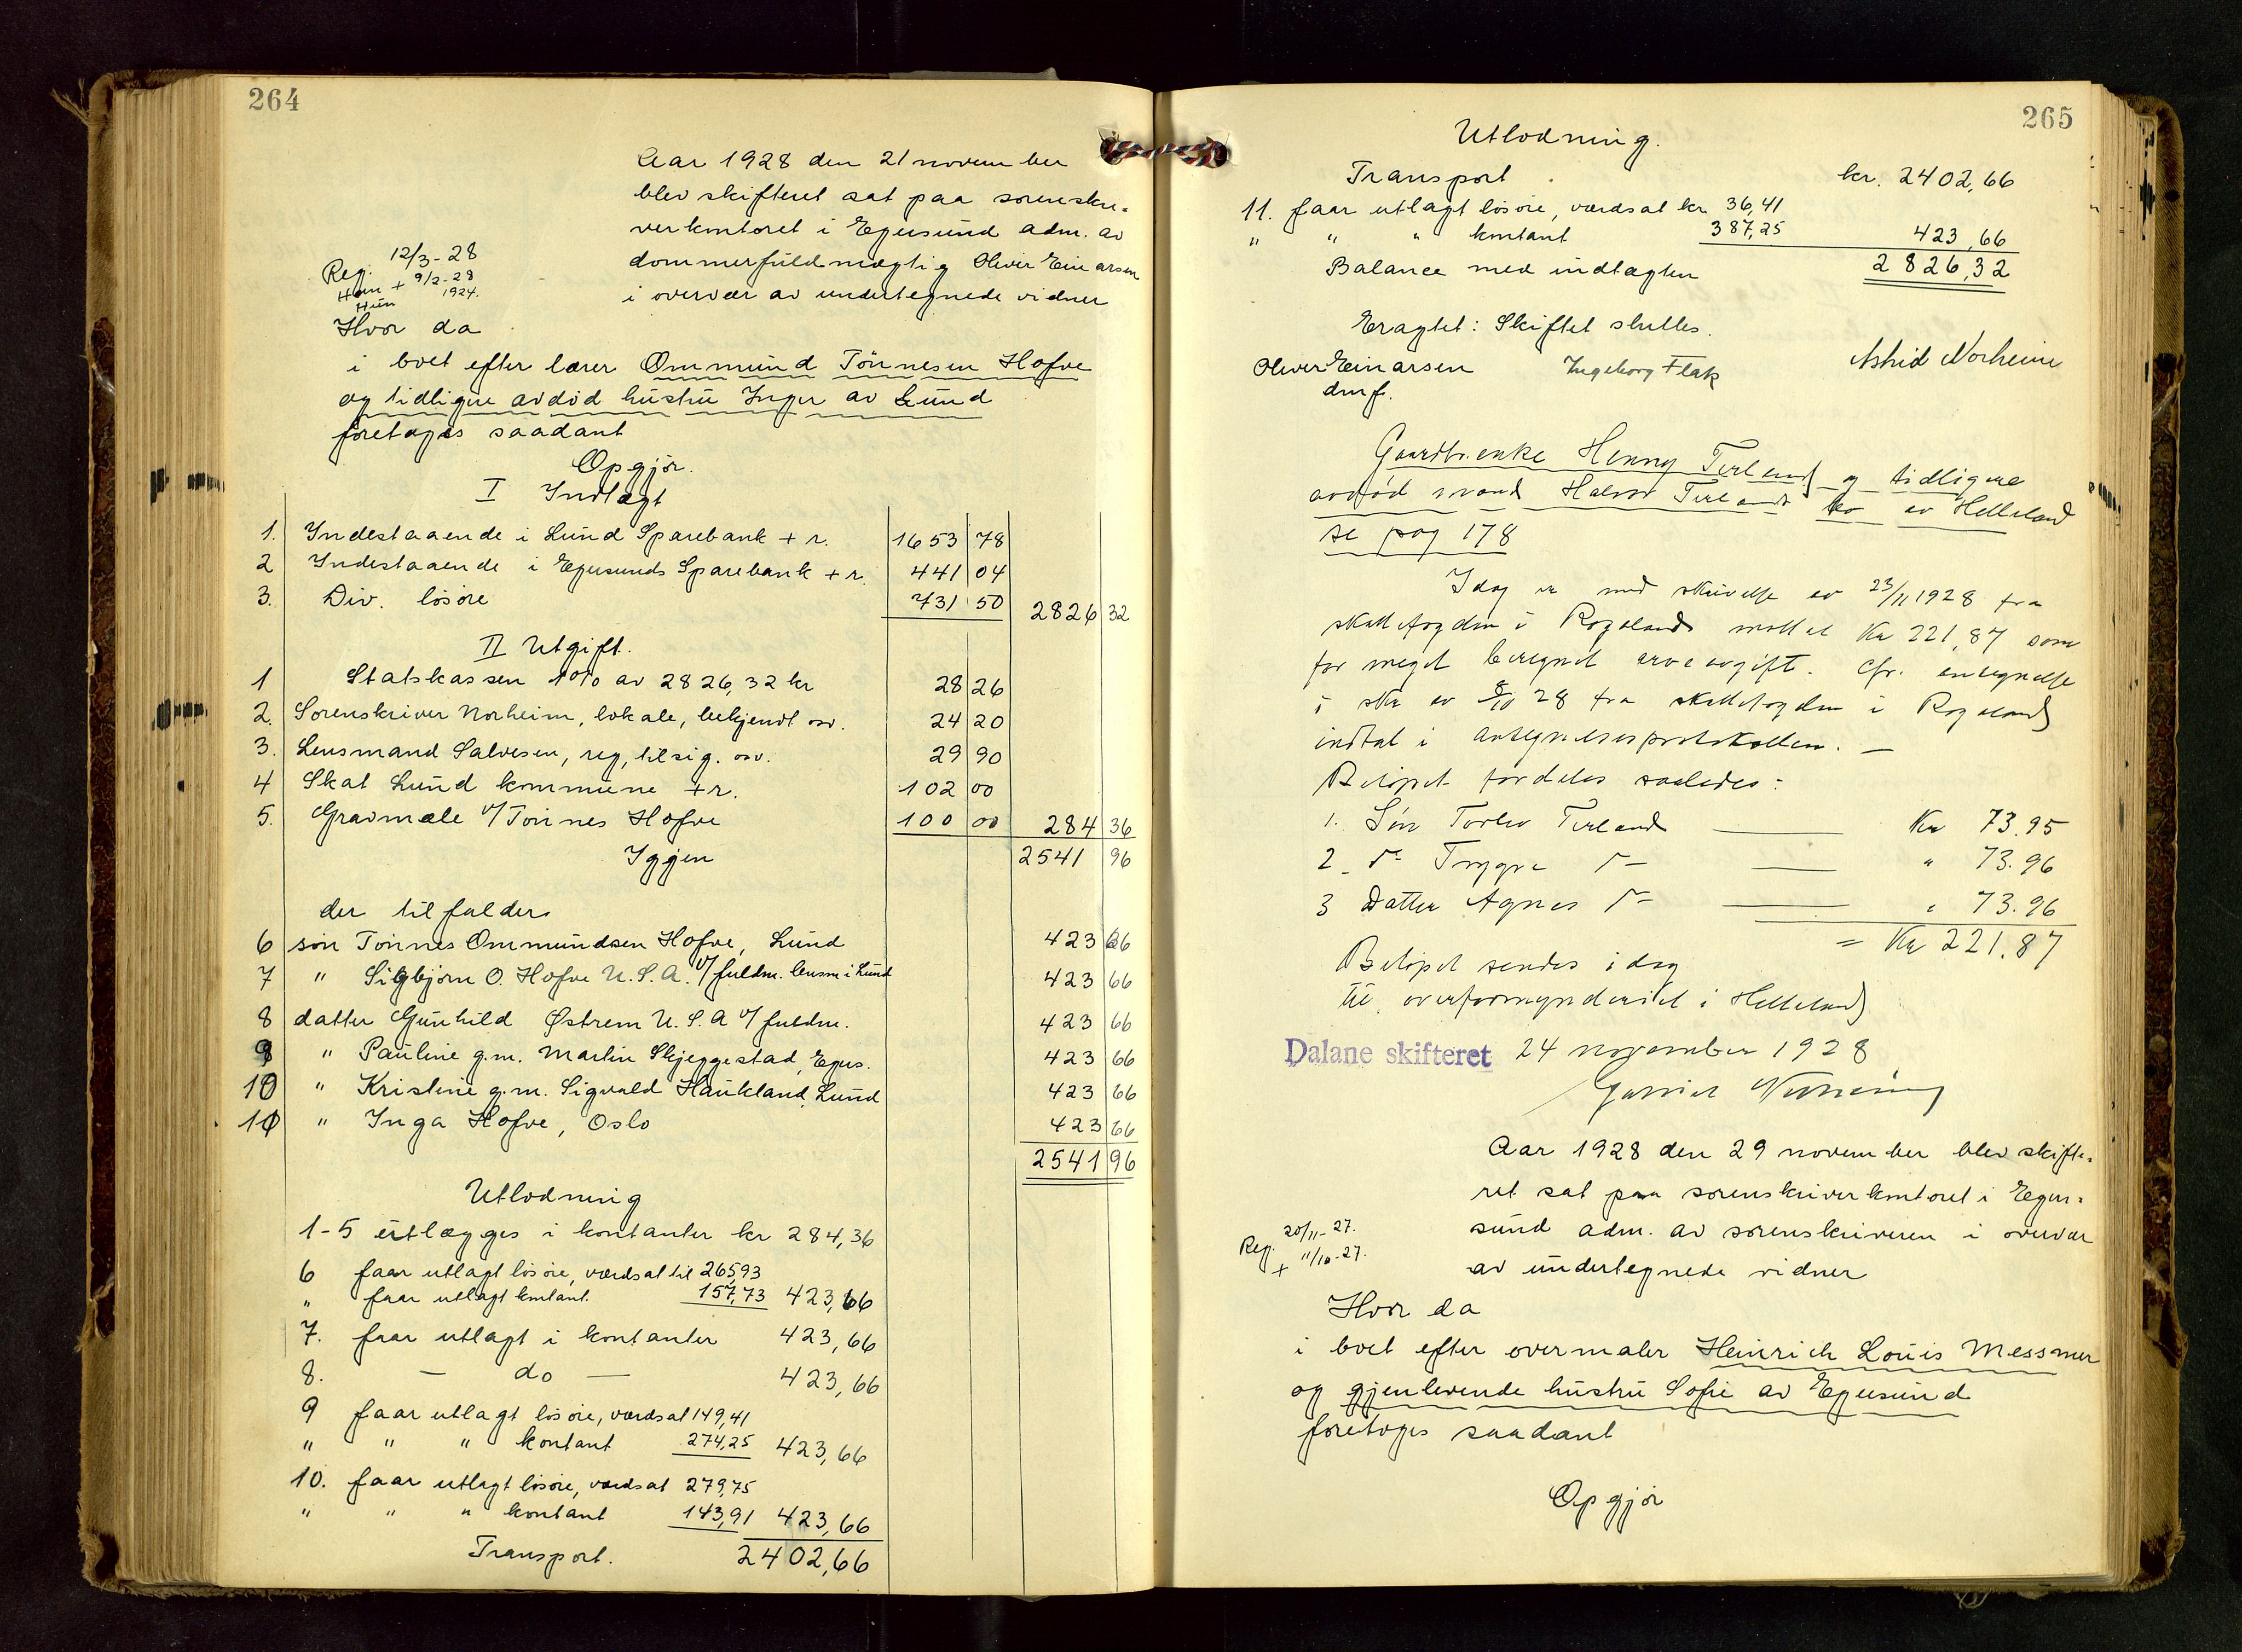 264
Aar 1928 den 21 november
blev skifteret sat paa sorenskri-
verkontoret i Egersund adm. av
dommerfuldmægtig Oliver Einarsen
i overvær av undertegnede vidner
Reg. 12/3-28
Han + 9/2-28
Hun 1924.
Hvor da
i boet efter lærer Ommund Tönnesen Hofve
og tidligere avdöd hustru Inger av Lund
foretoges saadant
Opgjör.
I Indtægt
1. Indestaaende i Lund Sparebank + r. 1653 78
2 Indestaaende i Egersunds Sparebank + r. 441 04
3. Div. lösöre 731 50 2826 32
II Utgift.
1 Statskassen 1% av 2826,32 kr 28 26
2. Sorenskriver Norheim, lokale, bekjendt osv. 24 20
3. Lensmand Salvesen, reg, tilsig. osv. 29 90
4 Skat Lund kommune + r. 102 00
5. Gravmæle v/ Tönnes Hofve 100 00 284 36
Igjen 2541 96
der tilfalder
6 sön Tönnes Ommundsen Hofve, Lund 423 66
7 " Sigbjörn O. Hofve U.S.A. v/ fuldm. lensm i Lund 423 66
8 datter Gunhild Østrem U.S.A v/ fuldm. 423 66
9 " Pauline g.m. Martin Skjeggestad, Egers. 423 66
10 " Kristine g.m. Sigvald Haukland, Lund 423 66
11 " Inga Hofve, Oslo 423 66
2541 96
Utlodning
1-5 utlægges i kontanter kr 284,36
6 faar utlagt lösöre, værdsat til 265,93
" faar utlagt kontant. 157,73 423,66
7. faar utlagt i kontanter 423,66
8. — do — 423,66
9 faar utlagt lösöre, værdsat 149,41
" " " kontant 274,25 423,66
10. faar utlagt lösöre, værdsat 279,75
" " " kontant 143,91 423,66
Transport. 2402,66
265
Utlodning.
Transport. kr. 2402,66
11. faar utlagt lösöre, værdsat kr 36,41
" " " kontant 387,25 423,66
Balance med indtægten 2826,32
Eragtet: Skiftet sluttes.
Oliver Einarsen Ingeborg Flak Astrid Norheim
dmf.
Gaardbr.enke Henny Terland og tidligere
avdöd mand Halvor Terlands bo av Helleland
se pag 178
Idag er med skrivelse av 23/11 1928 fra
skattefogden i Rogaland mottat Kr 221,87 som
for meget beregnet arveavgift. Cfr. antegnelse
i skr av 8/10 28 fra skattefogden i Rogaland
indtat i antegnelsesprotokollen. —
Belöpet fordeles saaledes:
1. Sön Torlev Terland — Kr 73.95
2 do Trygve do — " 73.96
3 Datter Agnes do — " 73.96
= Kr 221.87
Belöpet sendes idag
til overformynderiet i Helleland
Dalane skifteret 24 november 1928
Aar 1928 den 29 november blev skifte-
ret sat paa sorenskriverkontoret i Eger-
sund adm. av sorenskriveren i overvær
av undertegnede vidner
Reg. 20/11-27.
+ 11/10-27.
Hvor da
i boet efter overmaler Heinrich Louis Messmer
og gjenlevende hustru Sofie av Egersund
foretoges saadant
Opgjör